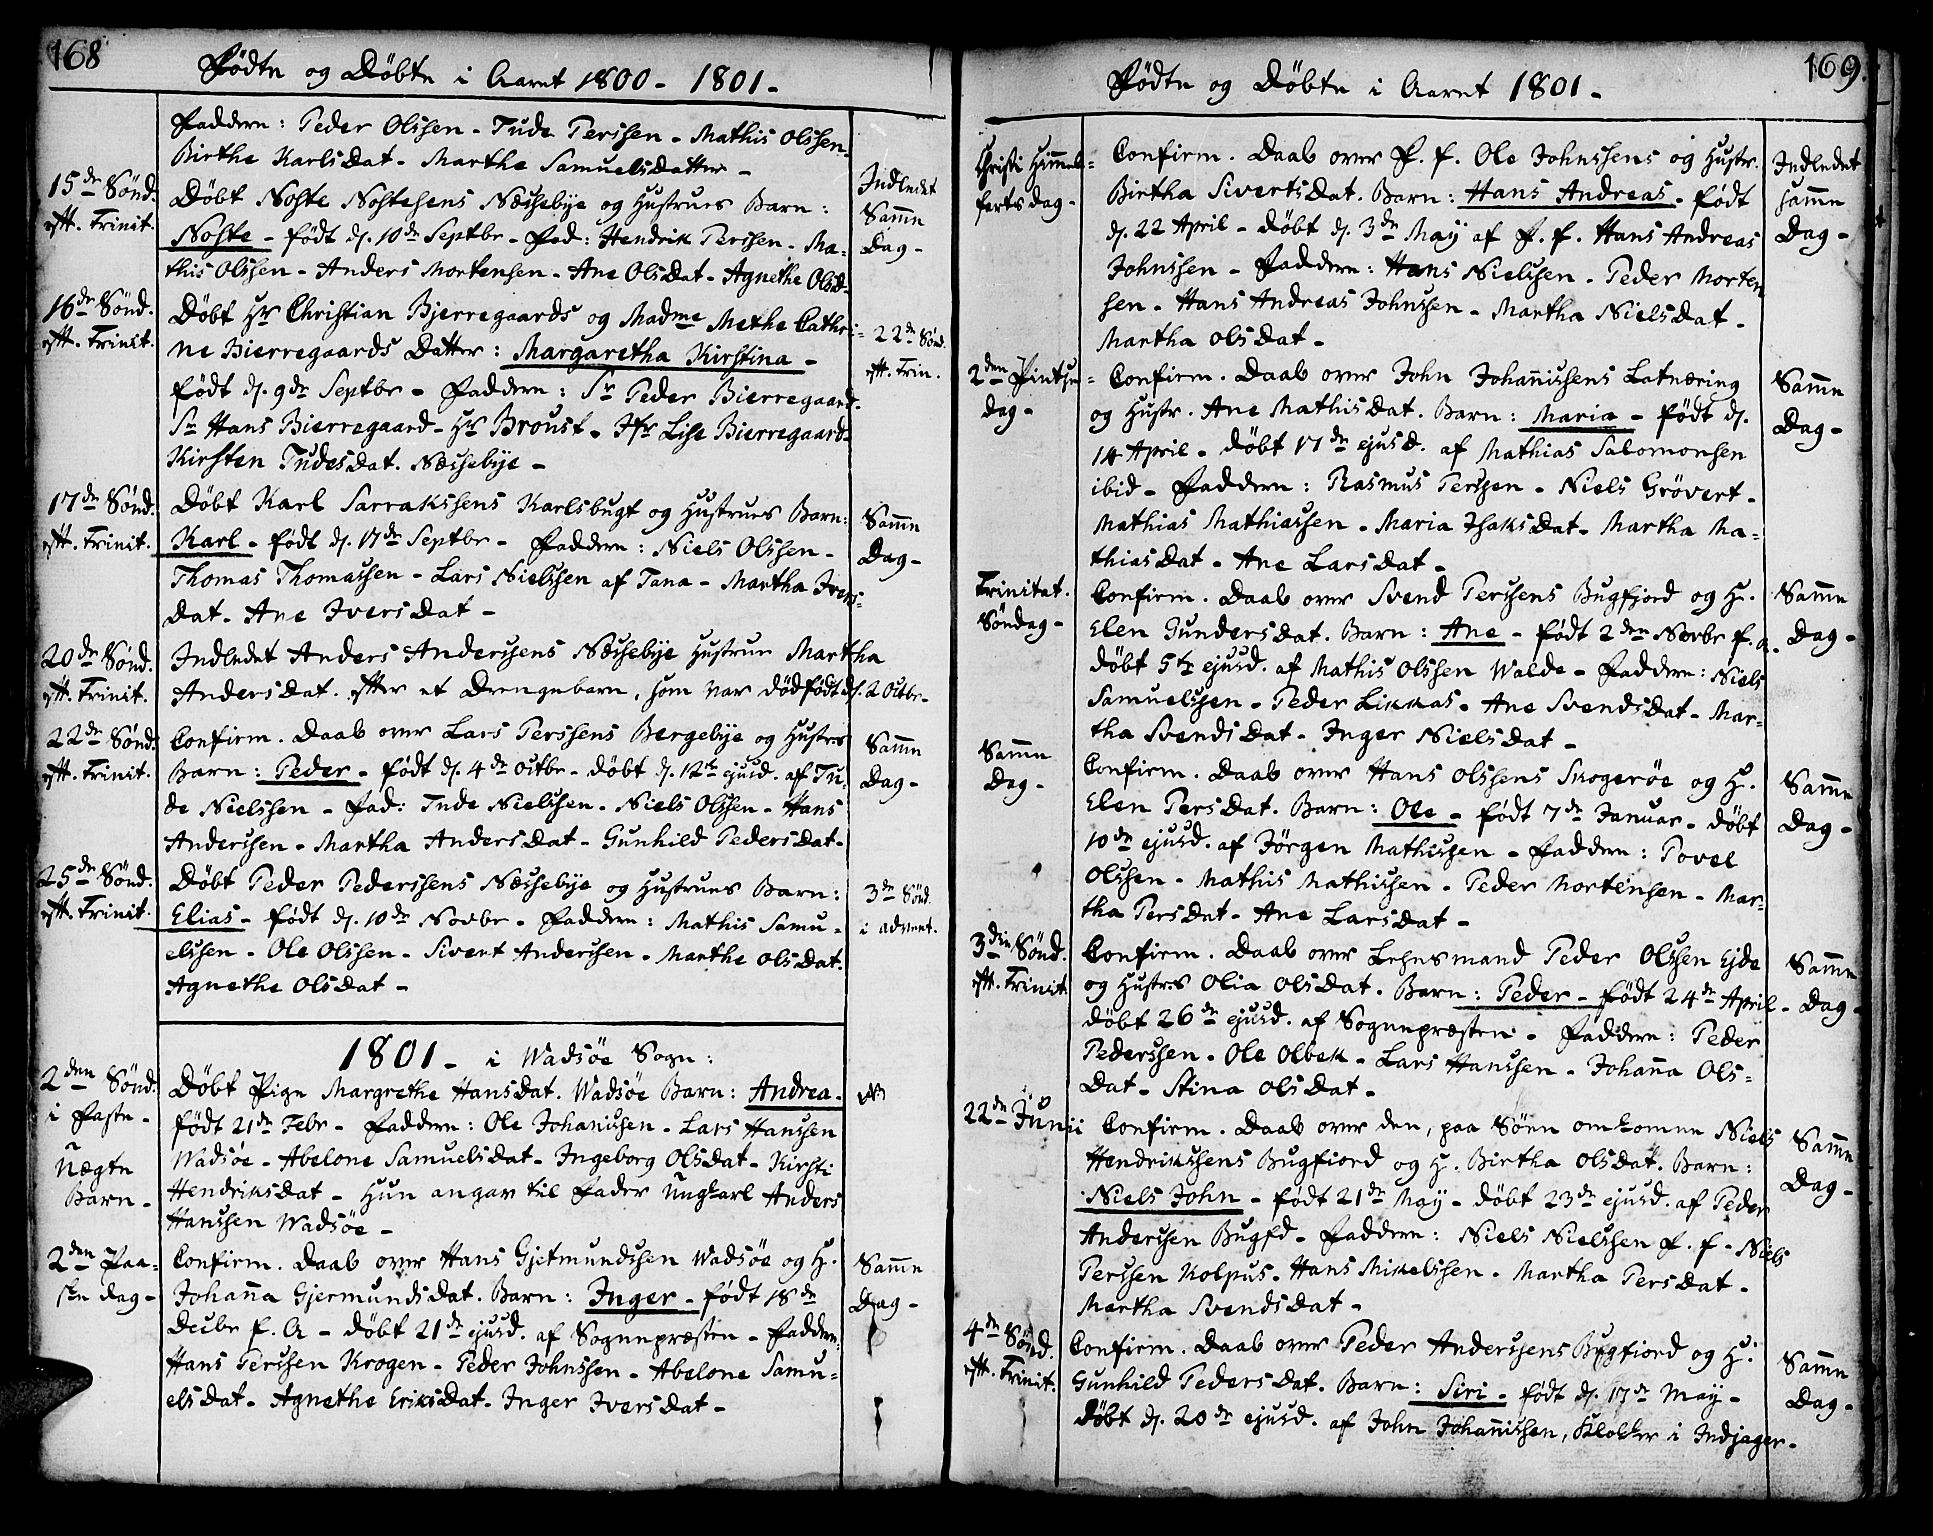 168
Fødte og Døbte i Aaret 1800 - 1801 -
Faddere: Peder Olssen - Tude Perssen - Mathis Olssen -
Birthe KarlsDat - Marthe SamuelsDatter -
15de Sønd.
eft. Trinit.
Døbt Noste Nostesens Næssebye og Hustrues Barn:
Noste - født d. 10de Septbr - Fad: Hendrik Perssen - Ma-
this Olssen - Anders Mortensen - Ane OlsDat - Agnethe OlsD-
Indledet
Samme
Dag -
16de Sønd.
eft. Trinit.
Døbt Hr Christian Bjerregaards og Madme Methe Cathri=
ne Bierregaards Datter: Margaretha Kirstina -
født d. 9de Septbr - Faddere: Sr Peder Bierregaard -
Sr Hans Bierregaard - Hr Broust - Jfr Lise Bierregaard -
Kirsten TudesDat. Næssebye -
22de Sønd.
eft. Trin.
17de Sønd.
eft. Trinit.
Døbt Karl Sarrakssens Karlsbugt og Hustrues Barn:
Karl - født d. 17de Septbr - Faddere: Niels Olssen -
Thomas Thomassen - Lars Nielssen af Tana - Martha Ivers=
Dat - Ane IversDat -
Samme
Dag -
20de Sønd.
eft. Trinit.
Indledet Anders Anderssens Næssebye Hustrue Martha
AndersDat. efter et Drengebarn, som var dødfødt d. 2 Octbr -
22de Sønd.
eft. Trinit.
Confirm. Daab over Lars Perssens Bergebye og Hustrs
Barn: Peder - født d. 4de Octbr - døbt d. 12te ejusd. af Tu-
de Nielssen - Fad: Tude Nielssen - Niels Olssen - Hans
Anderssen - Martha AndersDat - Gunhild PedersDat -
Samme
Dag -
25de Sønd.
eft. Trinit.
Døbt Peder Pederssens Næssebye og Hustrues Barn:
Elias - født d. 10de Novbr - Faddere: Mathis Samu-
elssen - Ole Olssen - Sivert Anderssen - Marthe OlsDat.
Agnethe OlsDat -
3de Sønd.
i Advent.
1801 - i Wadsøe Sogn:
2den Sønd.
i Faste -
Uægte
Barn -
Døbt Pige Margrethe HansDat. Wadsøe Barn: Andrea -
født 21de Febr - Faddere: Ole Johanissen - Lars Hanssen
Wadsøe - Abelone SamuelsDat - Ingeborg OlsDat - Kirsti
HendriksDat - Hun angav til Fader Ungkarl Anders
Hanssen Wadsøe -
2den Paa-
ske Dag -
Confirm. Daab over Hans Gjetmundssen Wadsøe og H.
Johanna GjermundsDat. Barn: Inger - født 18de
Decbr f. A - døbt 21de ejusd. af Sognepræsten - Faddere:
Hans Perssen Krogen - Peder Johnssen - Abelone Samu-
elsDat - Agnethe EriksDat - Inger IversDat -
Samme
Dag -
169.
Fødte og Døbte i Aaret 1801 -
Christi Himmel=
farts dag -
Confirm. Daab over F. f. Ole Johnssens og Hustr.
Birtha SivertsDat. Barn: Hans Andreas - født
d. 22 April - døbt d. 3de May af F. f. Hans Andreas
Johnssen - Faddere: Hans Nielssen - Peder Morten
sen - Hans Andreas Johnssen - Martha NielsDat -
Martha OlsDat -
Indledet
samme
Dag -
2den Pintse=
dag -
Confirm. Daab over John Johanissens Latnæring
og Hustr. Ane MathisDat. Barn: Maria - født d.
14 April - døbt 17de ejusd. af Mathias Salomonsen
ibid - Faddere: Rasmus Perssen - Niels Grövert -
Mathias Mathiassen - Maria IsaksDat - Martha Ma=
thiasDat - Ane LarsDat -
Samme
Dag -
Trinitat.
Søndag -
Confirm. Daab over Svend Perssens Bugfjord og H.
Elen GundersDat. Barn: Ane - født 2den Novbr f. a.
døbt 5te ejusd. af Mathis Olssen Walde - Faddere: Niels
Samuelssen - Peder Likkas - Ane SvendsDat - Mar-
tha SvendsDat - Inger NielsDat -
Samme
Dag -
Samme
Dag -
Confirm. Daab over Hans Olssens Skogerøe og H.
Elen PersDat. Barn: Ole - født 7de Januar - døbt
10de ejusd. af Jörgen Mathissen - Faddere: Povel
Olssen - Mathis Mathissen - Peder Mortensen - Mar-
tha PersDat - Ane LarsDat -
Samme
Dag -
3die Sønd.
eft. Trinit
Confirm. Daab over Lehnsmand Peder Olssen Ejde
og Hustrs Olia OlsDat. Barn: Peder - født 24de April -
døbt 26de ejusd. af Sognepræsten - Faddere: Peder
Pederssen - Ole Olbek - Lars Hanssen - Johanna Ols-
Dat - Stina OlsDat -
Samme
Dag -
22de Junii
Confirm. Daab over den, paa Søen omkomne Niels
Hendrikssens Bugfiord og H. Birtha OlsDat. Barn:
Niels John - født 21de May - døbt 23de ejusd. af Peder
Anderssen Bugfd - Faddere: Niels Nielssen F. f - Niels
Perssen Kolpus - Hans Mikelssen - Martha PersDat -
Martha SvendsDat -
Samme
Dag -
4de Sønd.
eft. Trinit.
Confirm. Daab over Peder Anderssens Bugfiord og H.
Gunhild PedersDat. Barn: Siri - født d. 17de May -
Døbt d. 20de ejusd. af John Johanissen, Klokker i Indjager -
Samme
Dag -